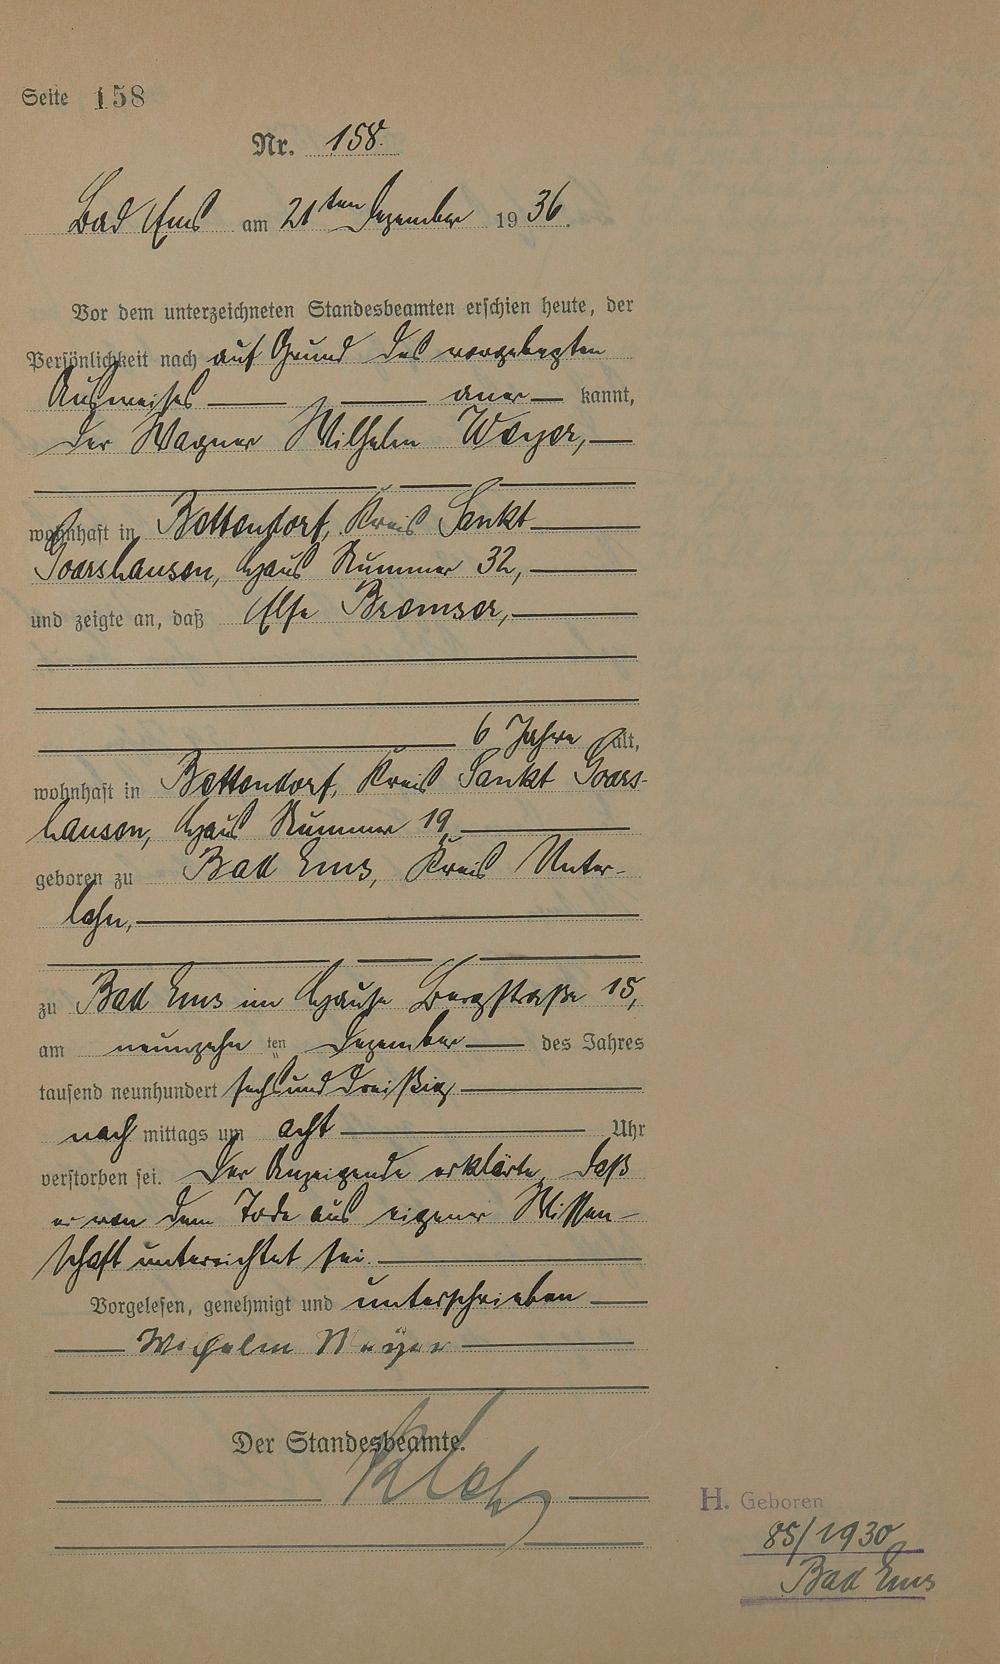 Seite 158
Nr. 158.
Bad Ems am 21ten Dezember 1936.
Vor dem unterzeichneten Standesbeamten erschien heute, der
Persönlichkeit nach auf Grund des vorgelegten
Ausweises aner kannt,
der Wagner Wilhelm Weyer,
wohnhaft in Bettendorf, Kreis Sankt
Goarshausen, Haus Nummer 32,
und zeigte an, daß Else Bremser,
6 Jahre alt,
wohnhaft in Bettendorf, Kreis Sankt Goars-
hausen, Haus Nummer 19
geboren zu Bad Ems, Kreis Unter-
lahn,
zu Bad Ems im Hause Bergstraße 15,
am neunzehn ten Dezember des Jahres
tausend neunhundert sechsunddreißig
nach mittags um acht Uhr
verstorben sei. Der Anzeigende erklärte, daß
er von dem Tode aus eigener Wissen-
schaft unterrichtet sei.
Vorgelesen, genehmigt und unterschrieben
Wilhelm Weyer
Der Standesbeamte.
H. Geboren
85/1930
Bad Ems